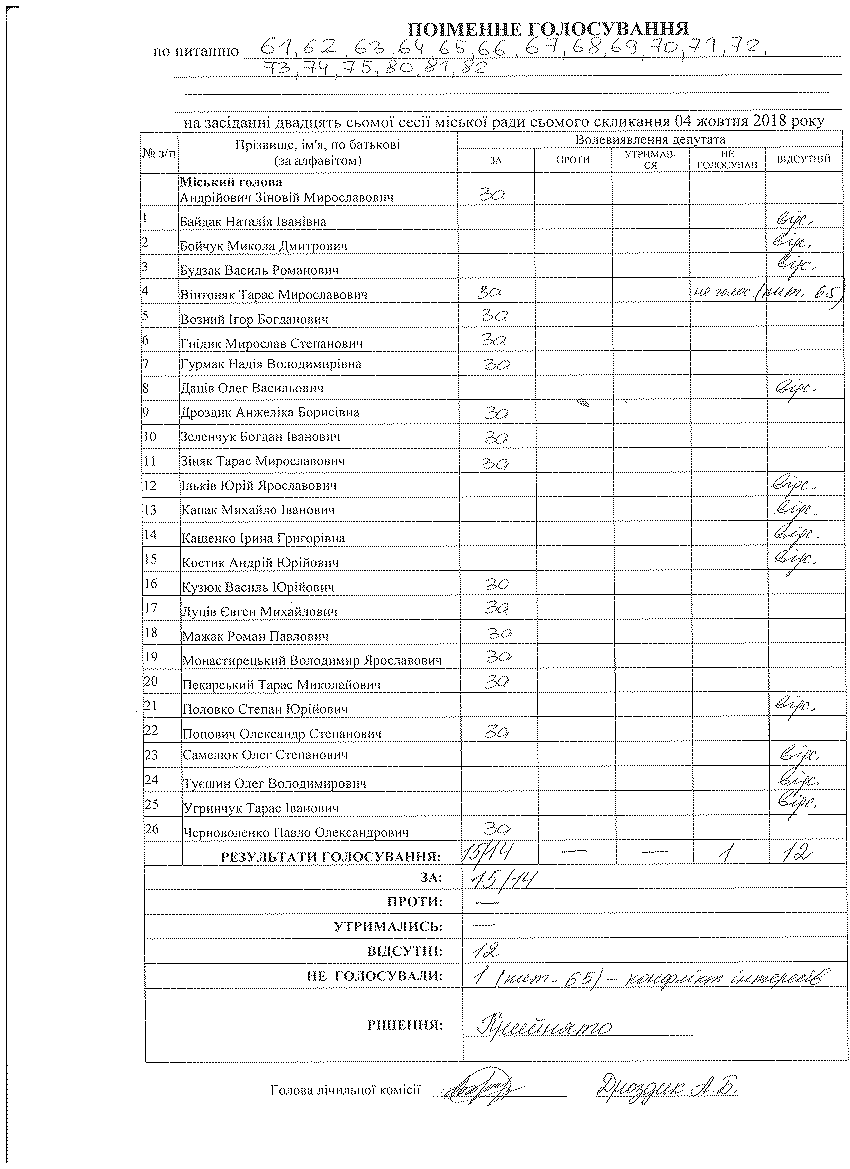 ПОІМЕННЕ ГОЛОСУВАННЯ
по питанню 61, 62, 63, 64, 65, 66, 67, 68, 69, 70, 71, 72,
73, 74, 75, 80, 81, 82
на засіданні двадцять сьомої сесії міської ради сьомого скликання 04 жовтня 2018 року
№ з/п Прізвище, ім'я, по батькові (за алфавітом) Волевиявлення депутата
ЗА ПРОТИ УТРИМАВ-СЯ НЕ ГОЛОСУВАВ ВІДСУТНІЙ
Міський голова
Андрійович Зіновій Мирославович за
1 Байдак Наталія Іванівна відс.
2 Бойчук Микола Дмитрович відс.
3 Будзак Василь Романович відс.
4 Вінтоняк Тарас Мирославович за не голос. (пит. 65)
5 Возний Ігор Богданович за
6 Гнідик Мирослав Степанович за
7 Гурмак Надія Володимирівна за
8 Даців Олег Васильович відс.
9 Дроздик Анжеліка Борисівна за
10 Зеленчук Богдан Іванович за
11 Зіняк Тарас Мирославович за
12 Ільків Юрій Ярославович відс.
13 Капак Михайло Іванович відс.
14 Кащенко Ірина Григорівна відс.
15 Костик Андрій Юрійович відс.
16 Кузюк Василь Юрійович за
17 Луців Євген Михайлович за
18 Мажак Роман Павлович за
19 Монастирецький Володимир Ярославович за
20 Пекарський Тарас Миколайович за
21 Половко Степан Юрійович відс.
22 Попович Олександр Степанович за
23 Самелюк Олег Степанович відс.
24 Туєшин Олег Володимирович відс.
25 Угринчук Тарас Іванович відс.
26 Черноволенко Павло Олександрович за
РЕЗУЛЬТАТИ ГОЛОСУВАННЯ: 15/14 — — 1 12
ЗА: 15/14
ПРОТИ: —
УТРИМАЛИСЬ: —
ВІДСУТНІ: 12
НЕ ГОЛОСУВАЛИ: 1 (пит - 65) - конфлікт інтересів
РІШЕННЯ: Прийнято
Голова лічильної комісії Дроздик А.Б.